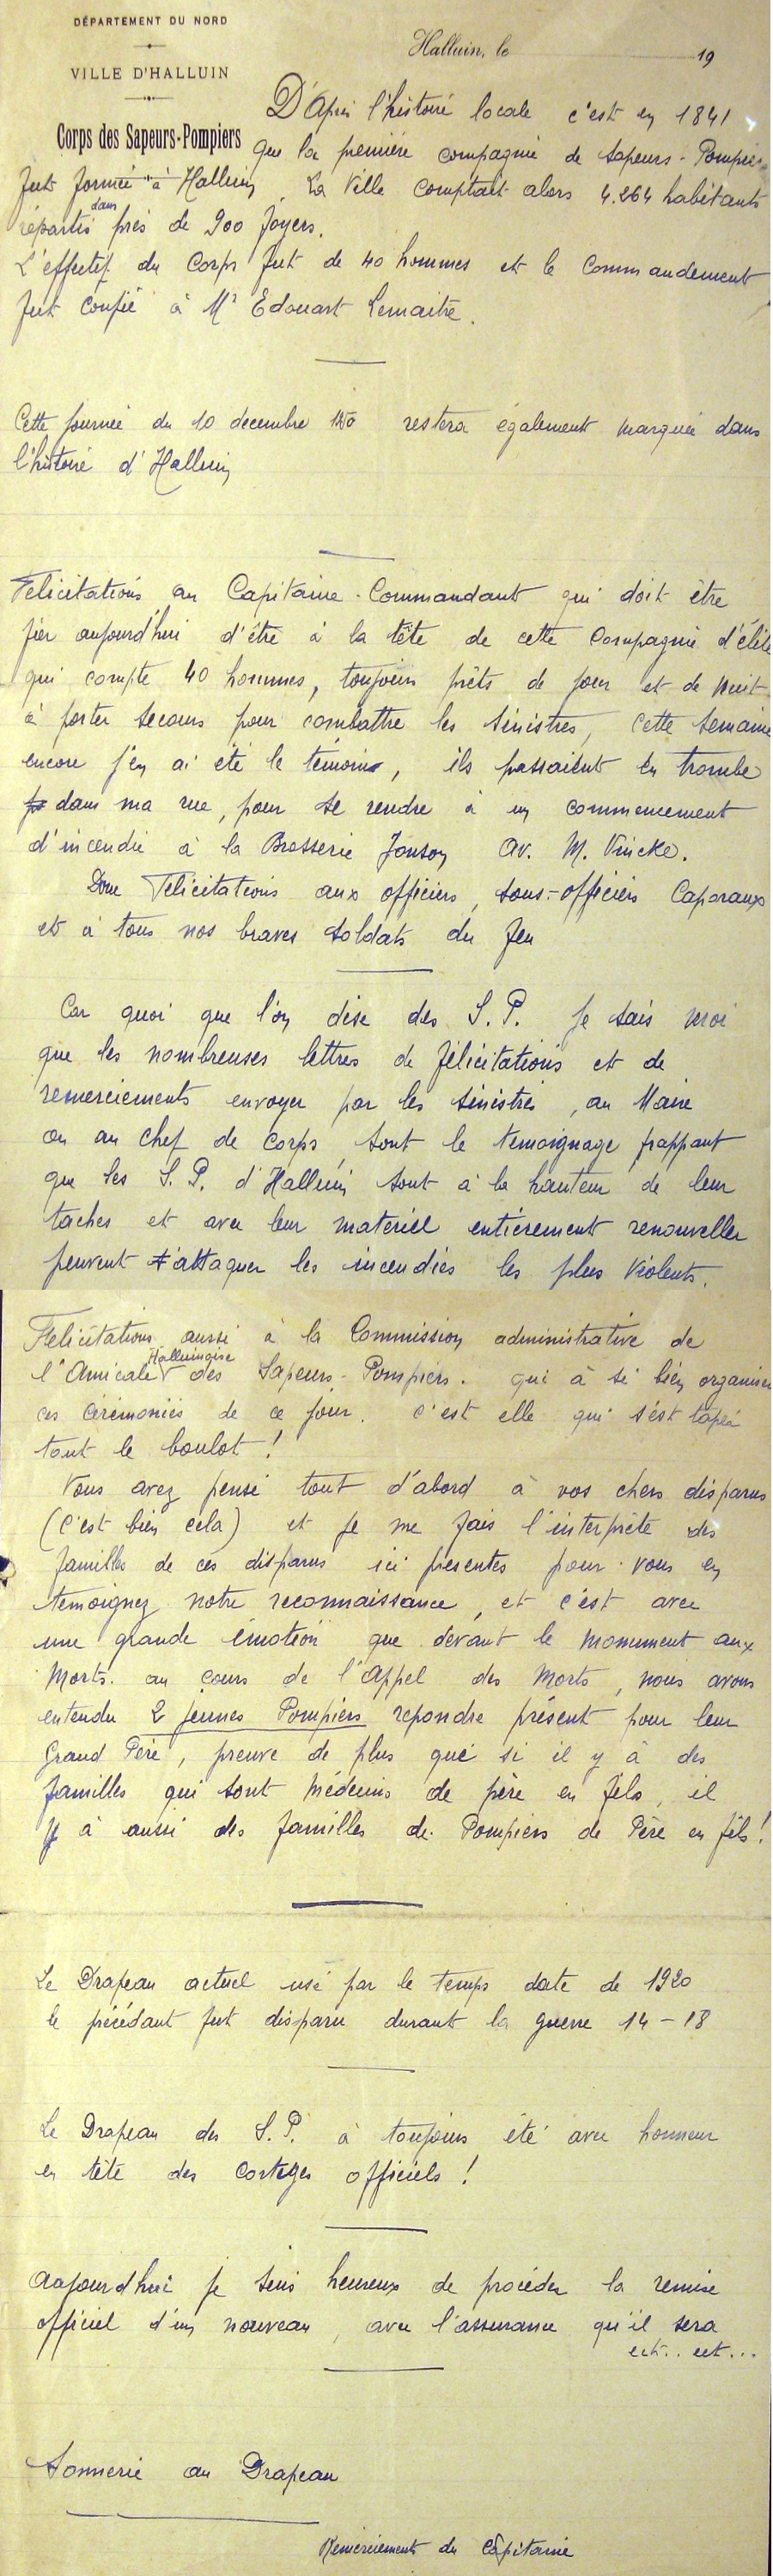 DÉPARTEMENT DU NORD
VILLE D'HALLUIN
Corps des Sapeurs-Pompiers
Halluin, le 19
D'Après l'histoire locale c'est en 1841
que la première compagnie de Sapeurs-Pompiers
fut formée à Halluin. La Ville comptait alors 4.264 habitants
répartis dans près de 900 foyers.
L'effectif du Corps fut de 40 hommes et le Commandement
fut confié à Mr Edouart Lemaitre.
Cette journée du 10 decembre restera également marquée dans
l'histoire d'Halluin
Félicitations au Capitaine-Commandant qui doit être
fier aujourd'hui d'être à la tête de cette Compagnie d'élite
qui compte 40 hommes, toujours prêts de jour et de nuit
à porter secours pour combattre les sinistres, cette semaine
encore j'en ai été le témoins, ils passaient en trombe
dans ma rue, pour se rendre à un commencement
d'incendie à la Brasserie Jonson av. M. Vincke.
Donc Félicitations aux officiers, sous-officiers Caporaux
et à tous nos braves soldats du feu
Car quoi que l'on dise des S.P. je sais moi
que les nombreuses lettres de félicitations et de
remerciements envoyer par les sinistrés, au Maire
ou au chef de Corps, sont le temoignage frappant
que les S.P. d'Halluin sont à la hauteur de leur
taches et avec leur materiel entièrement renouveller
peuvent s'attaquer les incendies les plus violents.
Félicitations aussi à la Commission administrative de
l'Amicale Halluinoise des Sapeurs-Pompiers. qui à si bien organiser
ces cérémonies de ce jour. c'est elle qui s'est tapée
tout le boulot !
Vous avez pensé tout d'abord à vos chers disparus
(C'est bien cela) et je me fais l'interprète des
familles de ces disparus ici présentes pour vous en
temoignez notre reconnaissance, et c'est avec
une grande émotion que devant le Monument aux
Morts. au cours de l'Appel des Morts, nous avons
entendu 2 jeunes Pompiers repondre présent pour leur
Grand Père, preuve de plus que si il y à des
familles qui sont Médecins de père en fils, il
y à aussi des familles de Pompiers de Père en fils !
Le Drapeau actuel usé par le temps date de 1920
le précédant fut disparu durant la guerre 14-18
Le Drapeau des S.P. à toujours été avec honneur
en tête des Cortèges officiels !
Aujourd'hui je suis heureux de procéder la remise
officiel d'un nouveau, avec l'assurance qu'il sera
ect.. ect...
Sonnerie au Drapeau
Remerciements du Capitaine